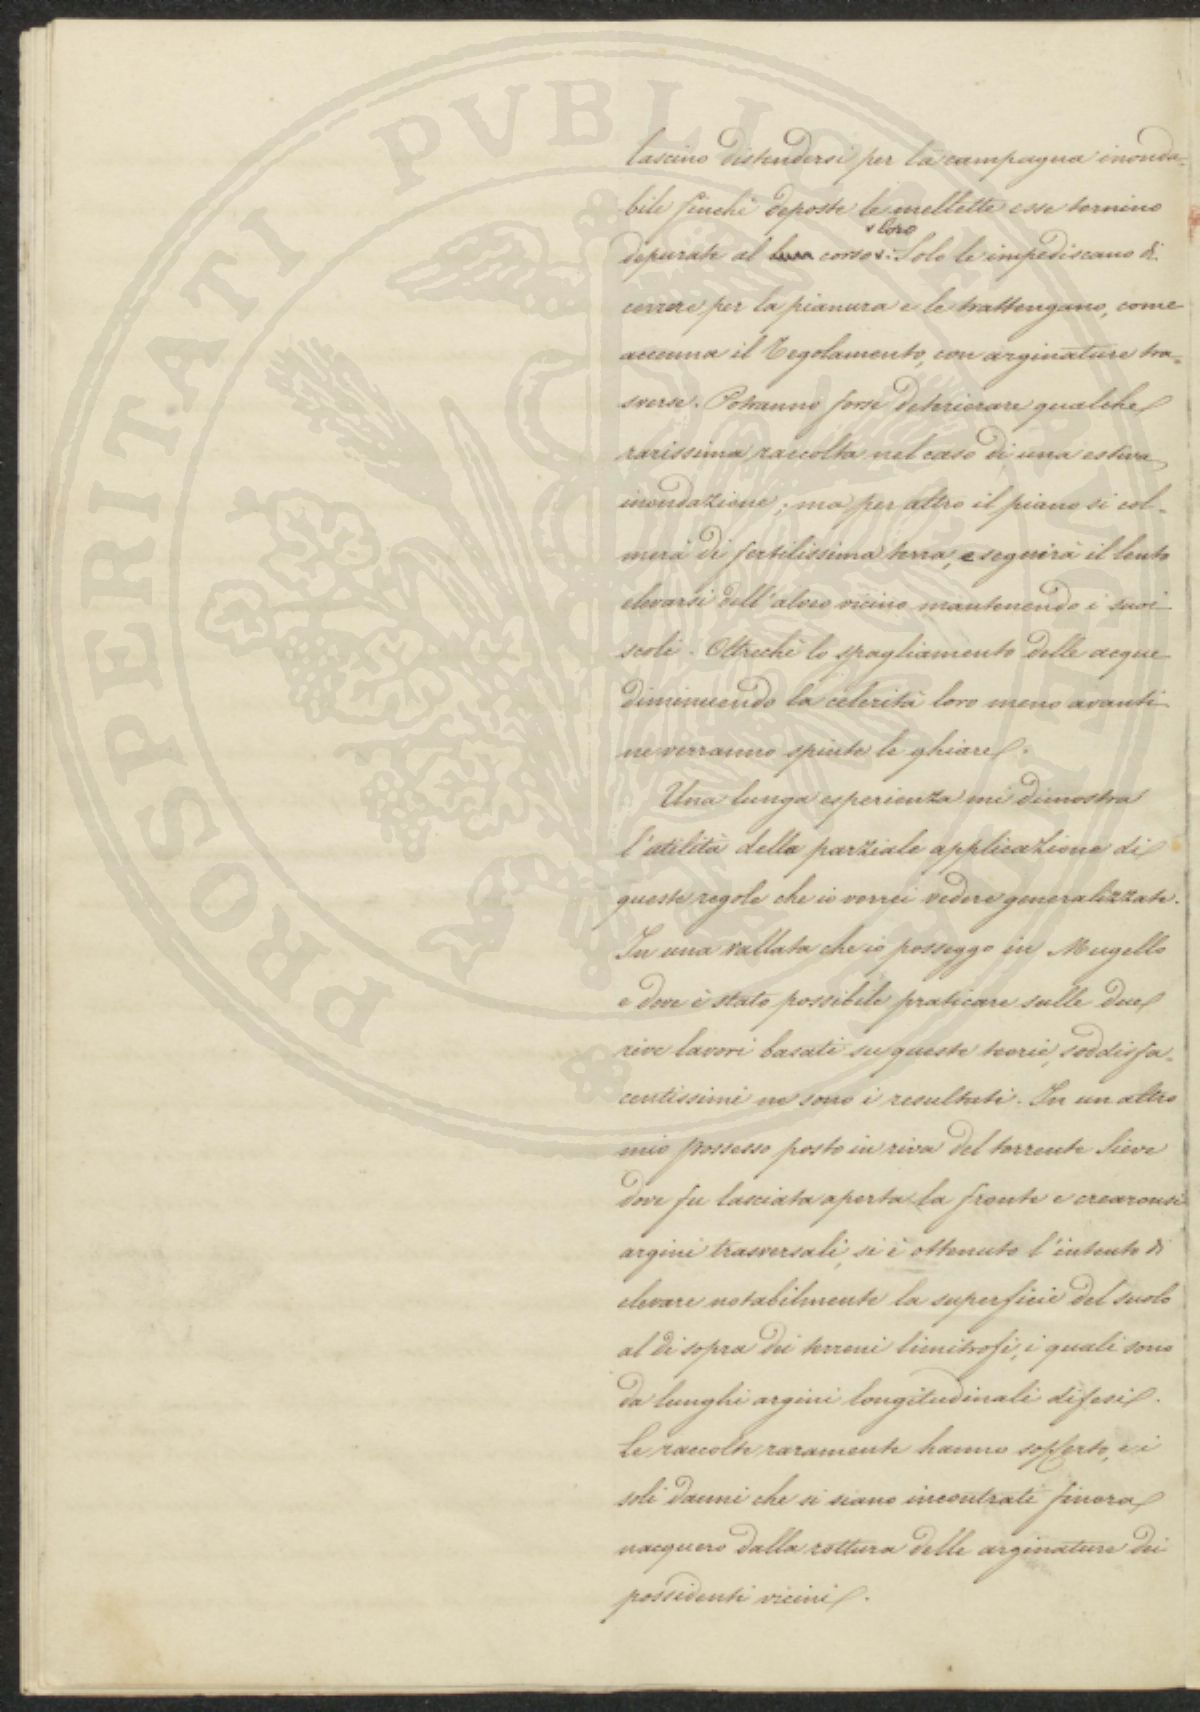 lascino distendersi per la campagna inonda-
bile finché deposte le mellette esse tornino
depurate al corso loro. Solo le impediscano di
correre per la pianura e le trattengano, come
accenna il Regolamento, con arginature tra-
sverse. Potranno forse deteriorare qualche
rarissima raccolta nel caso di una estiva
inondazione; ma per altro il piano si col-
merà di fertilissima terra, e seguirà il lento
elevarsi dell'alveo vicino mantenendo i suoi
scoli. Oltreché lo spagliamento delle acque
diminuendo la celerità loro meno avanti
ne verranno spinte le ghiare.
Una lunga esperienza mi dimostra
l'utilità della parziale applicazione di
queste regole che io vorrei vedere generalizzate.
In una vallata che io posseggo in Mugello
e dove è stato possibile praticare sulle due
rive lavori basati su queste teorie, soddisfa-
centissimi ne sono i resultati. In un altro
mio possesso posto in riva del torrente Sieve
dove fu lasciata aperta la fronte e crearonsi
argini trasversali, si è ottenuto l'intento di
elevare notabilmente la superficie del suolo
al di sopra dei terreni limitrofi, i quali sono
da lunghi argini longitudinali difesi.
Le raccolte raramente hanno sofferto, e i
soli danni che si siano incontrati finora
nacquero dalla rottura delle arginature dei
possidenti vicini.
PROSPERITATI PVBLICAE